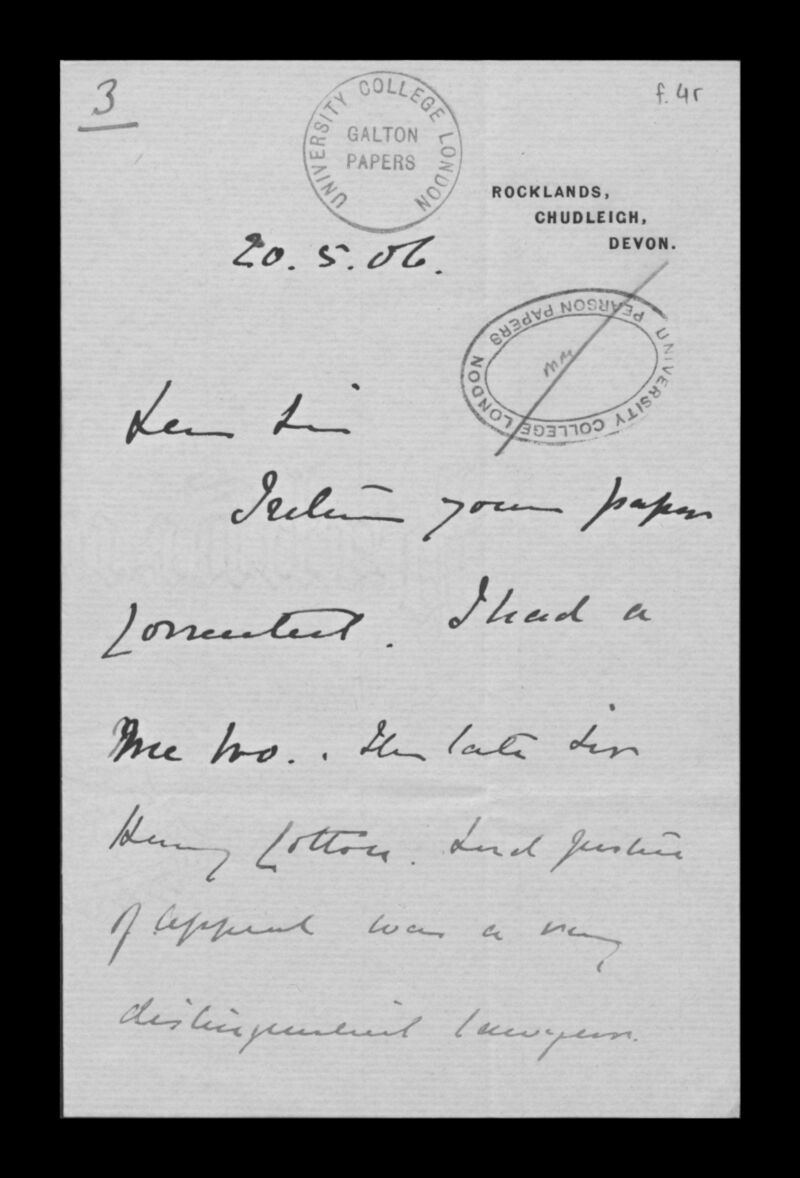 3
f. 4r
UNIVERSITY COLLEGE LONDON
GALTON
PAPERS
ROCKLANDS,
CHUDLEIGH,
DEVON.
20. 5. 06.
UNIVERSITY COLLEGE LONDON PEARSON PAPERS
Dear Sir
I return your paper
corrected. I had a
. The late Sir
Henry Cotton. Lord Justice
of Appeal was a very
distinguished lawyer.